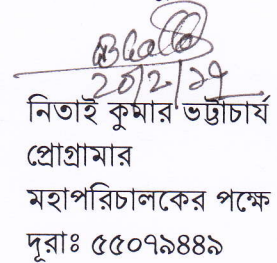 20/2/17
নিতাই কুমার ভট্টাচার্য
প্রোগ্রামার
মহাপরিচালকের পক্ষে
দূরাঃ ৫৫০৭৯৪৪৯